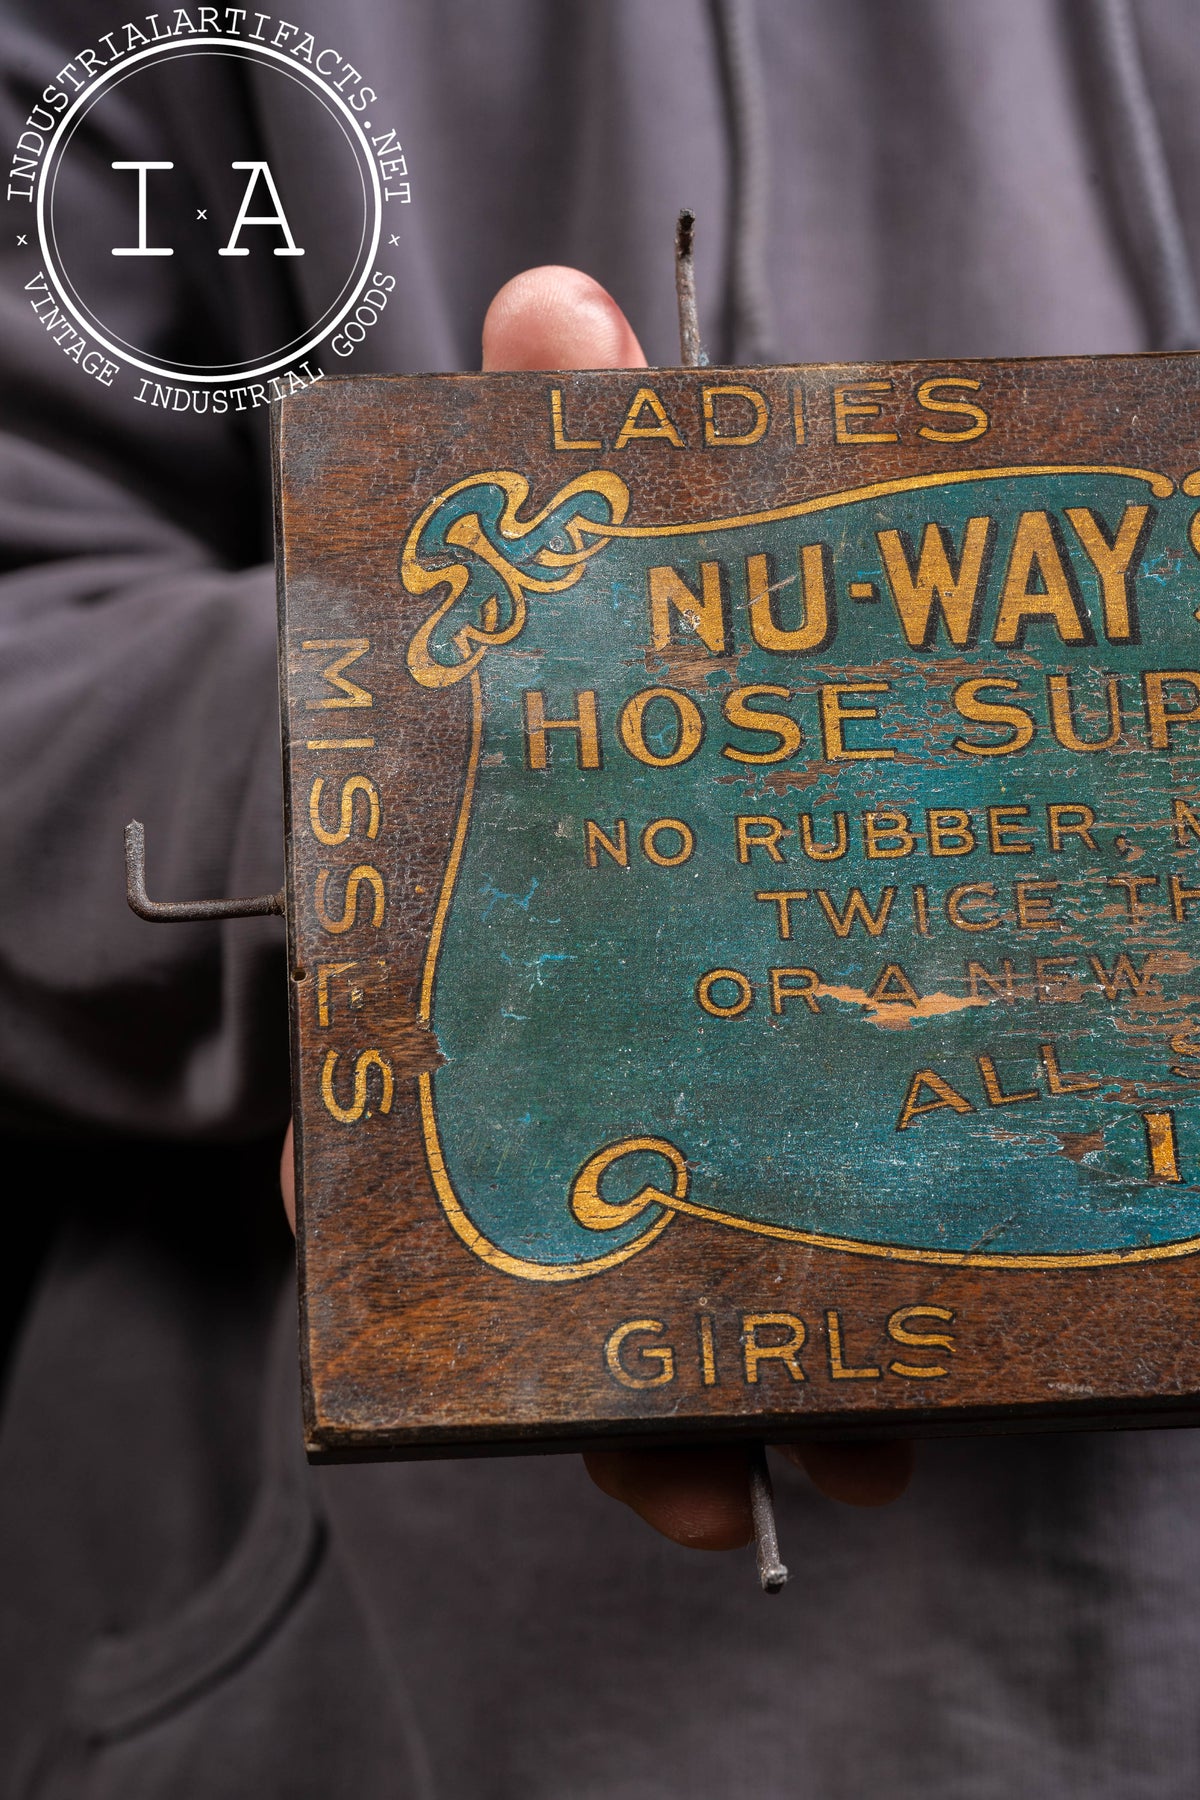 INDUSTRIALARTIFACTS.NET
I x A
x x
VINTAGE INDUSTRIAL GOODS
LADIES
MISSLS
NU-WAY
HOSE SUP
NO RUBBER, N
TWICE TH
OR A NEW
ALL S
1
GIRLS